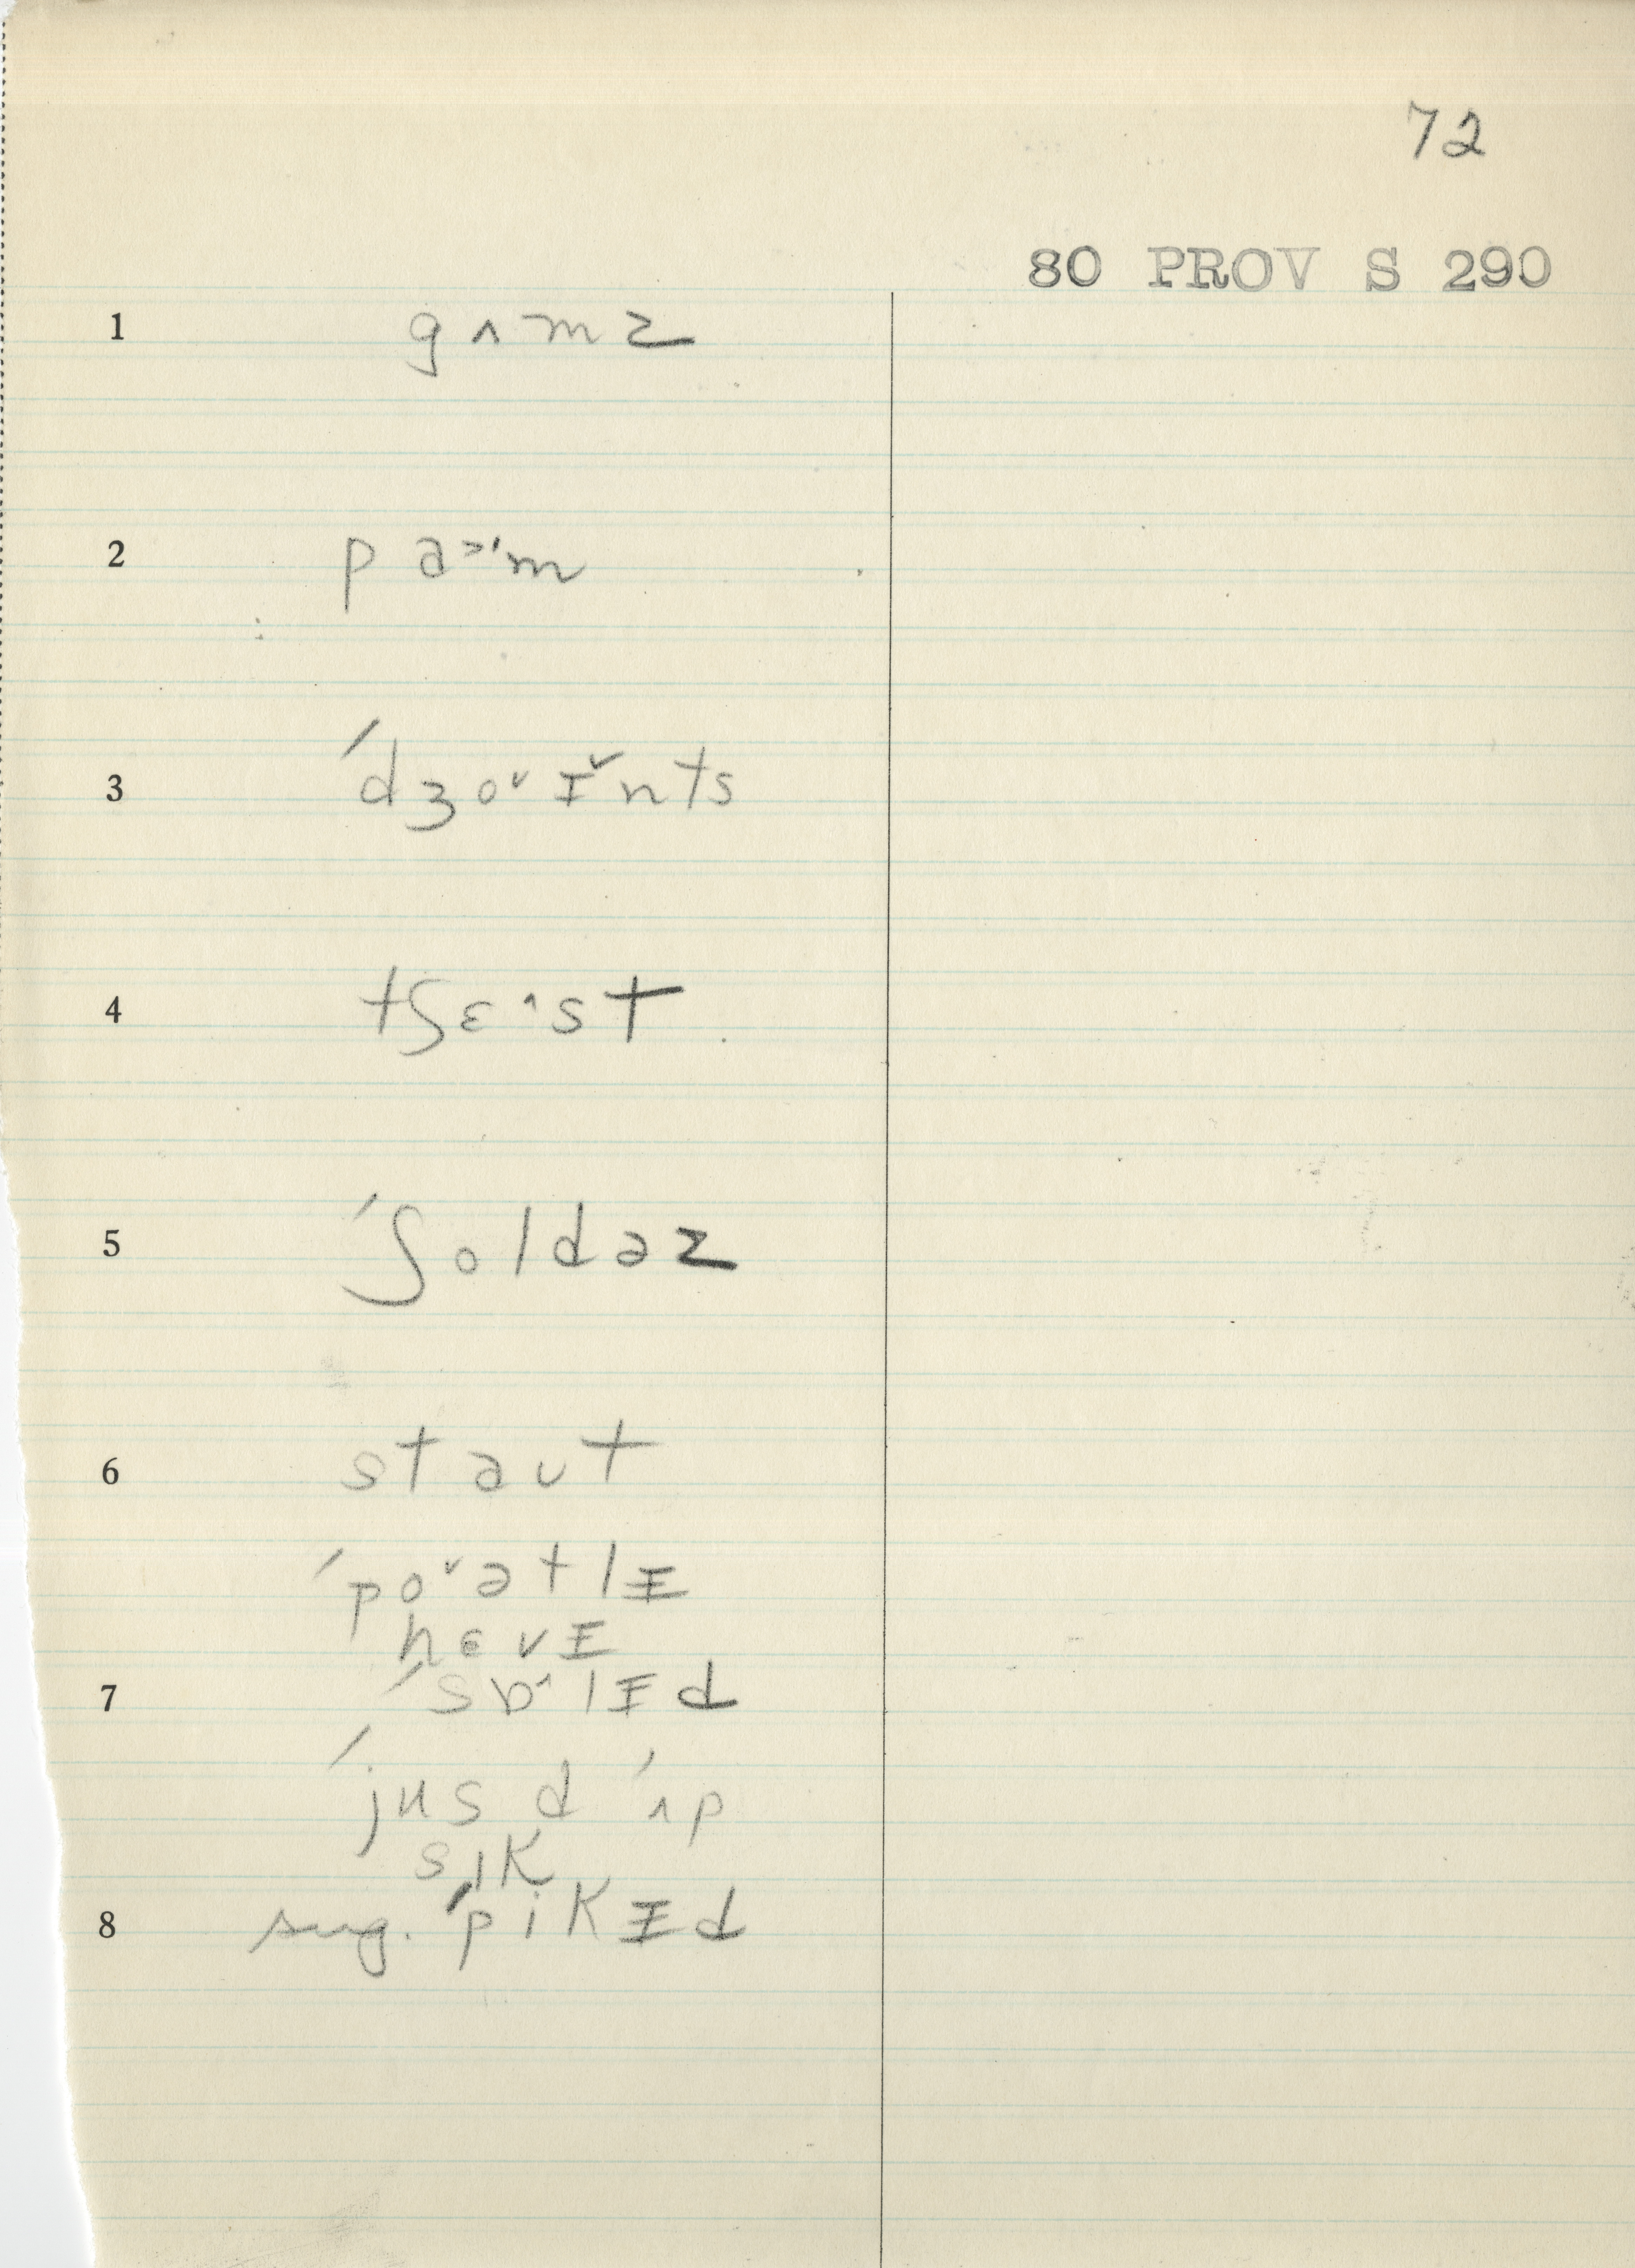 72
80 PROV S 290
1 gʌmz
2 pa˃'m
3 ˊdʒo˅ɪ˅nts
4 tʃɛ˄st
5 ˊʃoldəz
6 staut
ˊpo˅ətlɪ
hɛvɪ
7 ˊsɒ˄lɪd
ˊjus d ˊʌp
sɪk
8 sug. ˊpikɪd